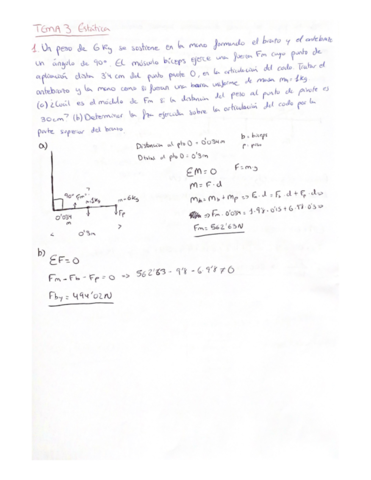 TEMA 3 Estática
1. Un peso de 6 Kg se sostiene en la mano formando el brazo y el antebrazo
un ángulo de 90°. El músculo bíceps ejerce una fuerza Fm cuyo punto de
aplicación dista 3'4 cm del punto O, es la articulación del codo. Tratar el
antebrazo y la mano como si fueran una barra uniforme de masa m=1kg
(a) ¿Cuál es el módulo de Fm si la distancia del peso al punto de pivote es
30cm? (b) Determinar la fza ejercida sobre la articulación del codo por la
parte superior del brazo
a)
Distancia al pto O = 0'034m
al pto O = 0'3m
b = biceps
p = peso
ΣM = 0
F = m·g
M = F·d
90°
Fm
m=1kg
m=6kg
Fp
0'034
m
0'3m
Fm = 562'63N
b)
ΣF=0
Fby = 494'02N